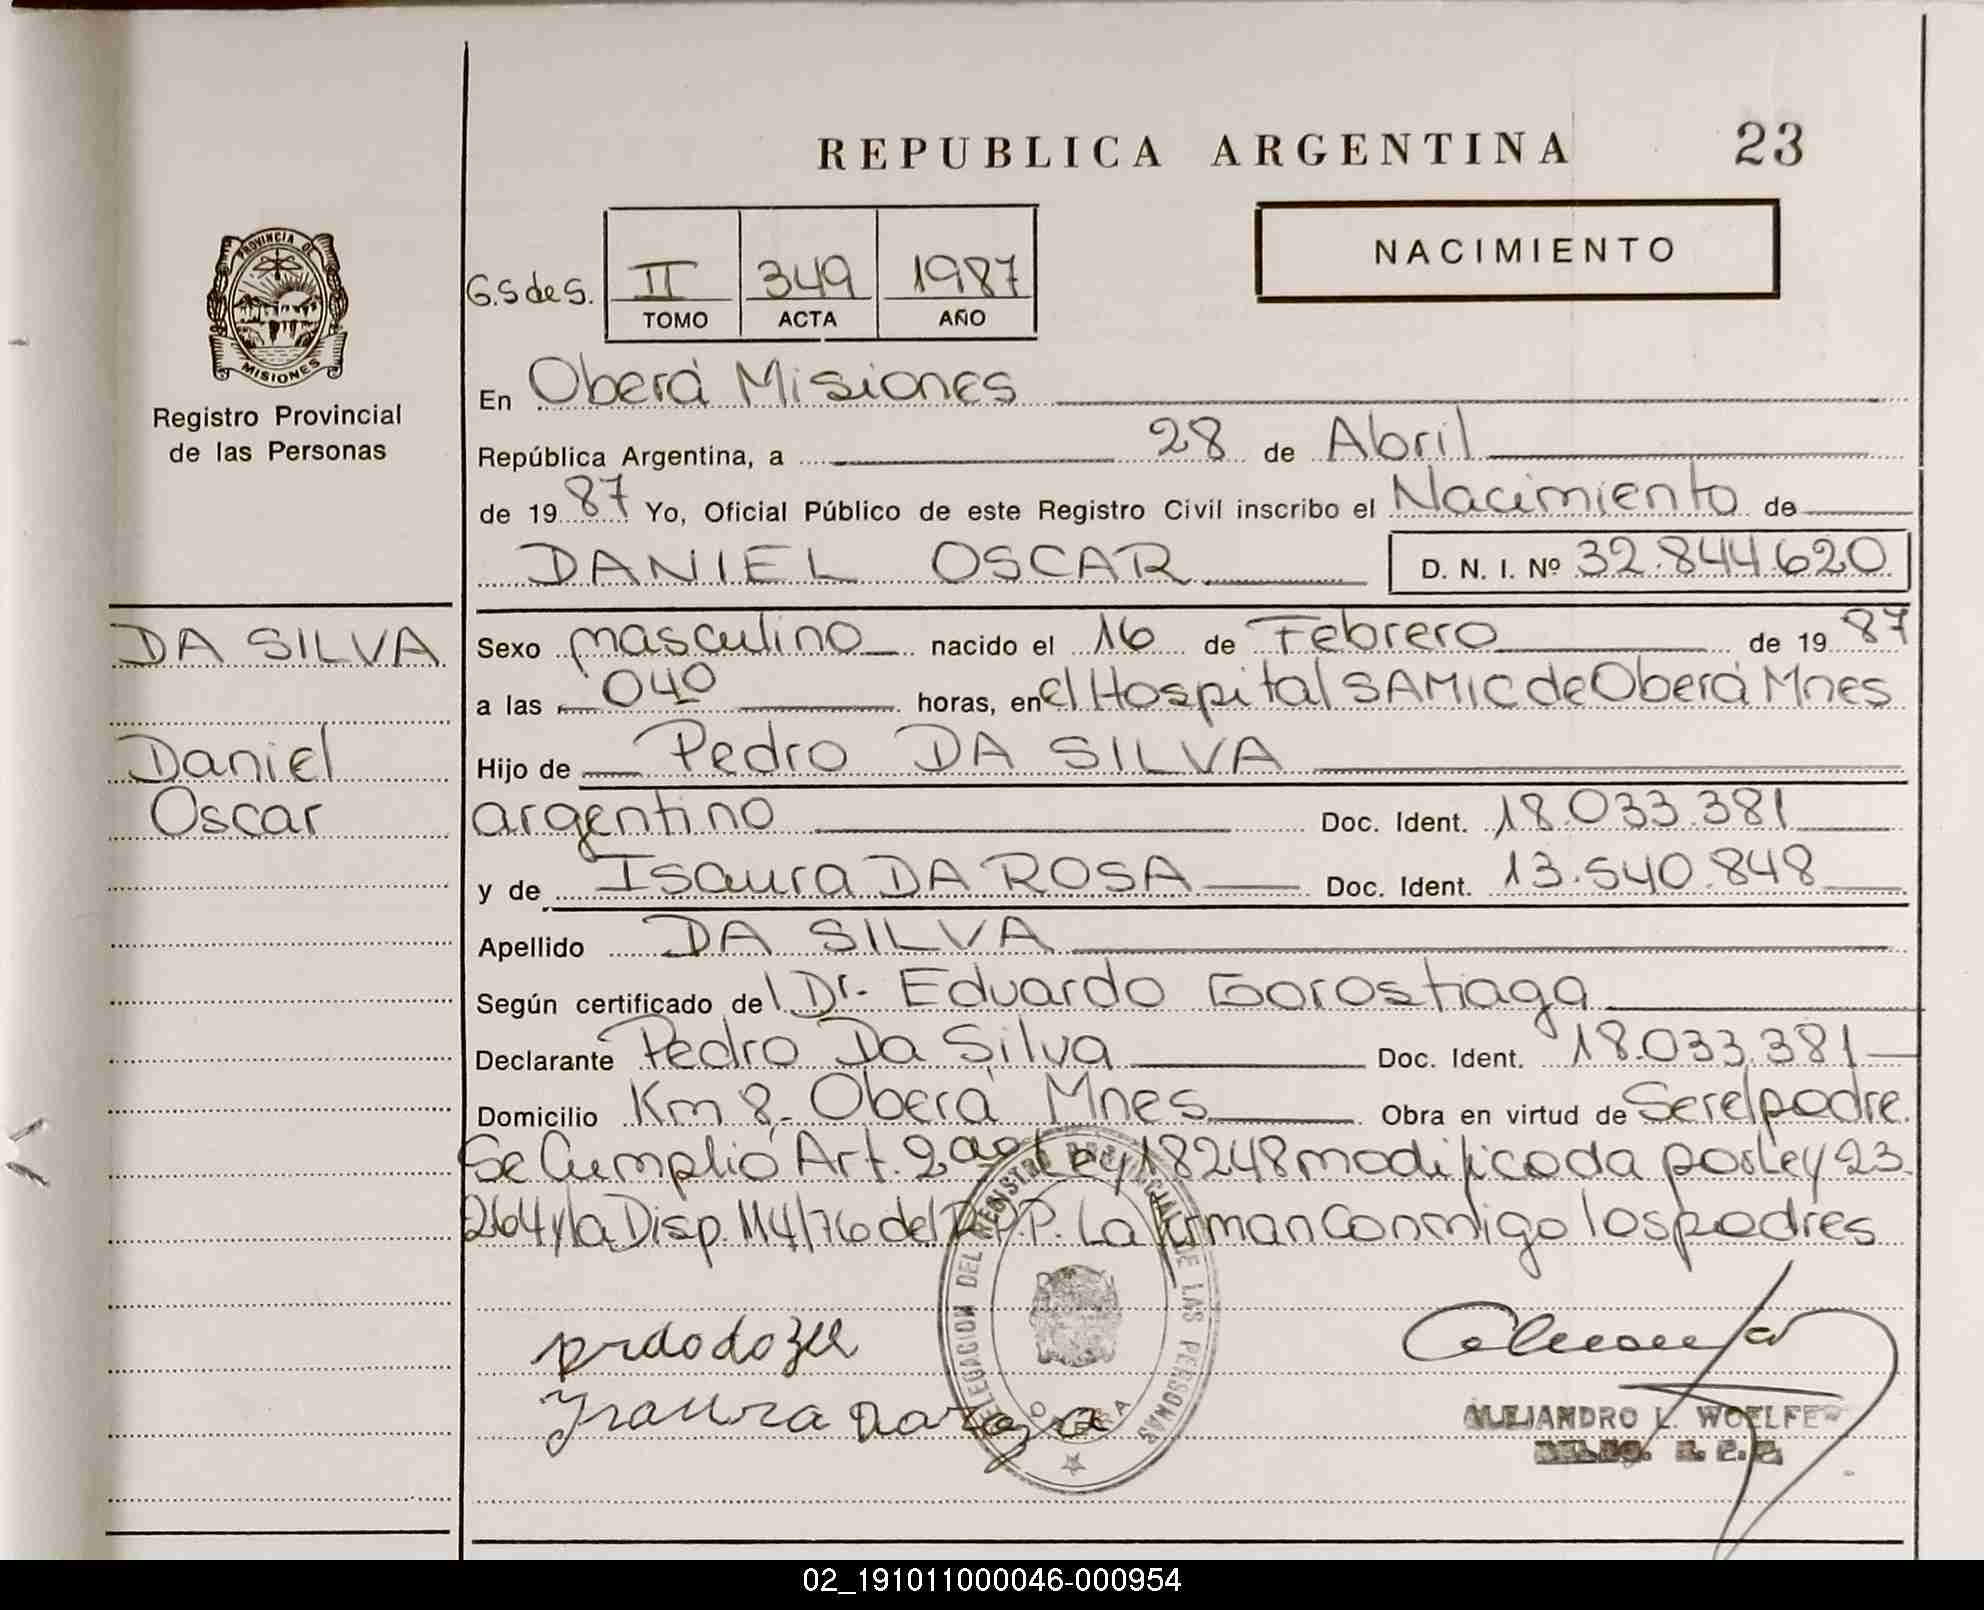 REPUBLICA ARGENTINA 23
NACIMIENTO
G.S de S. II 349 1987
TOMO ACTA AÑO
PROVINCIA DE
MISIONES
Registro Provincial
de las Personas
En Oberá Misiones
República Argentina, a 28 de Abril
de 19 87 Yo, Oficial Público de este Registro Civil inscribo el Nacimiento de
DANIEL OSCAR D. N. I. Nº 32.844.620
DA SILVA
Daniel
Oscar
Sexo masculino nacido el 16 de Febrero de 19 87
a las 040 horas, en el Hospital SAMIC de Oberá Mnes
Hijo de Pedro DA SILVA
argentino Doc. Ident. 18.033.381
y de Isaura DA ROSA Doc. Ident. 13.540.848
Apellido DA SILVA
Según certificado del Dr. Eduardo Gorostiaga
Declarante Pedro Da Silva Doc. Ident. 18.033.381
Domicilio Km 8. Oberá Mnes Obra en virtud de Ser el padre.
Se Cumplió Art. 2 Ley 18248 modificada por Ley 23.
264 y la Disp. 114/76 del R.P.P. La firman conmigo los padres
DELEGACION DEL REGISTRO PROVINCIAL DE LAS PERSONAS
OBERA
ALEJANDRO L. WOELFE
02_191011000046-000954